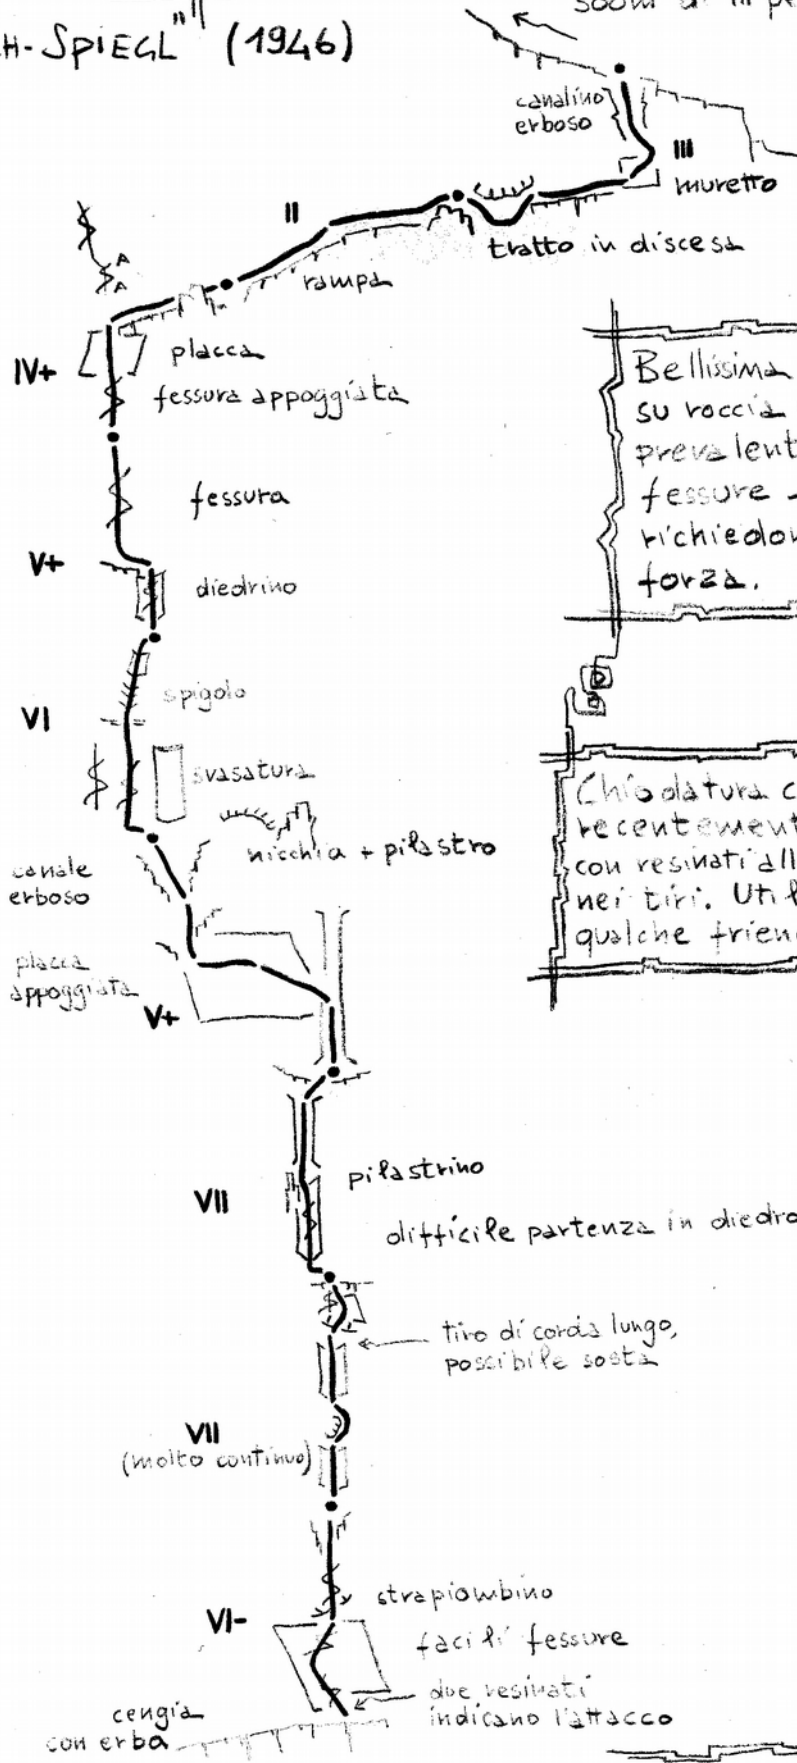 H-SPIEGL" (1946)
500m di III
canalino
erboso
III
muretto
II
tratto in discesa
rampa
placca
IV+
fessura appoggiata
fessura
V+
diedrino
spigolo
VI
svasatura
nicchia + pilastro
canale
erboso
placca
appoggiata
V+
pilastrino
VII
difficile partenza in diedro
tiro di corda lungo,
possibile sosta
VII
(molto continuo)
strapiombino
VI-
facili fessure
due resinati
indicano l'attacco
cengia
con erba
Bellissima
su roccia
prevalent
fessure
richiedon
forza.
Chiodatura c
recentement
con resinati all
nei tiri. Util
qualche frien